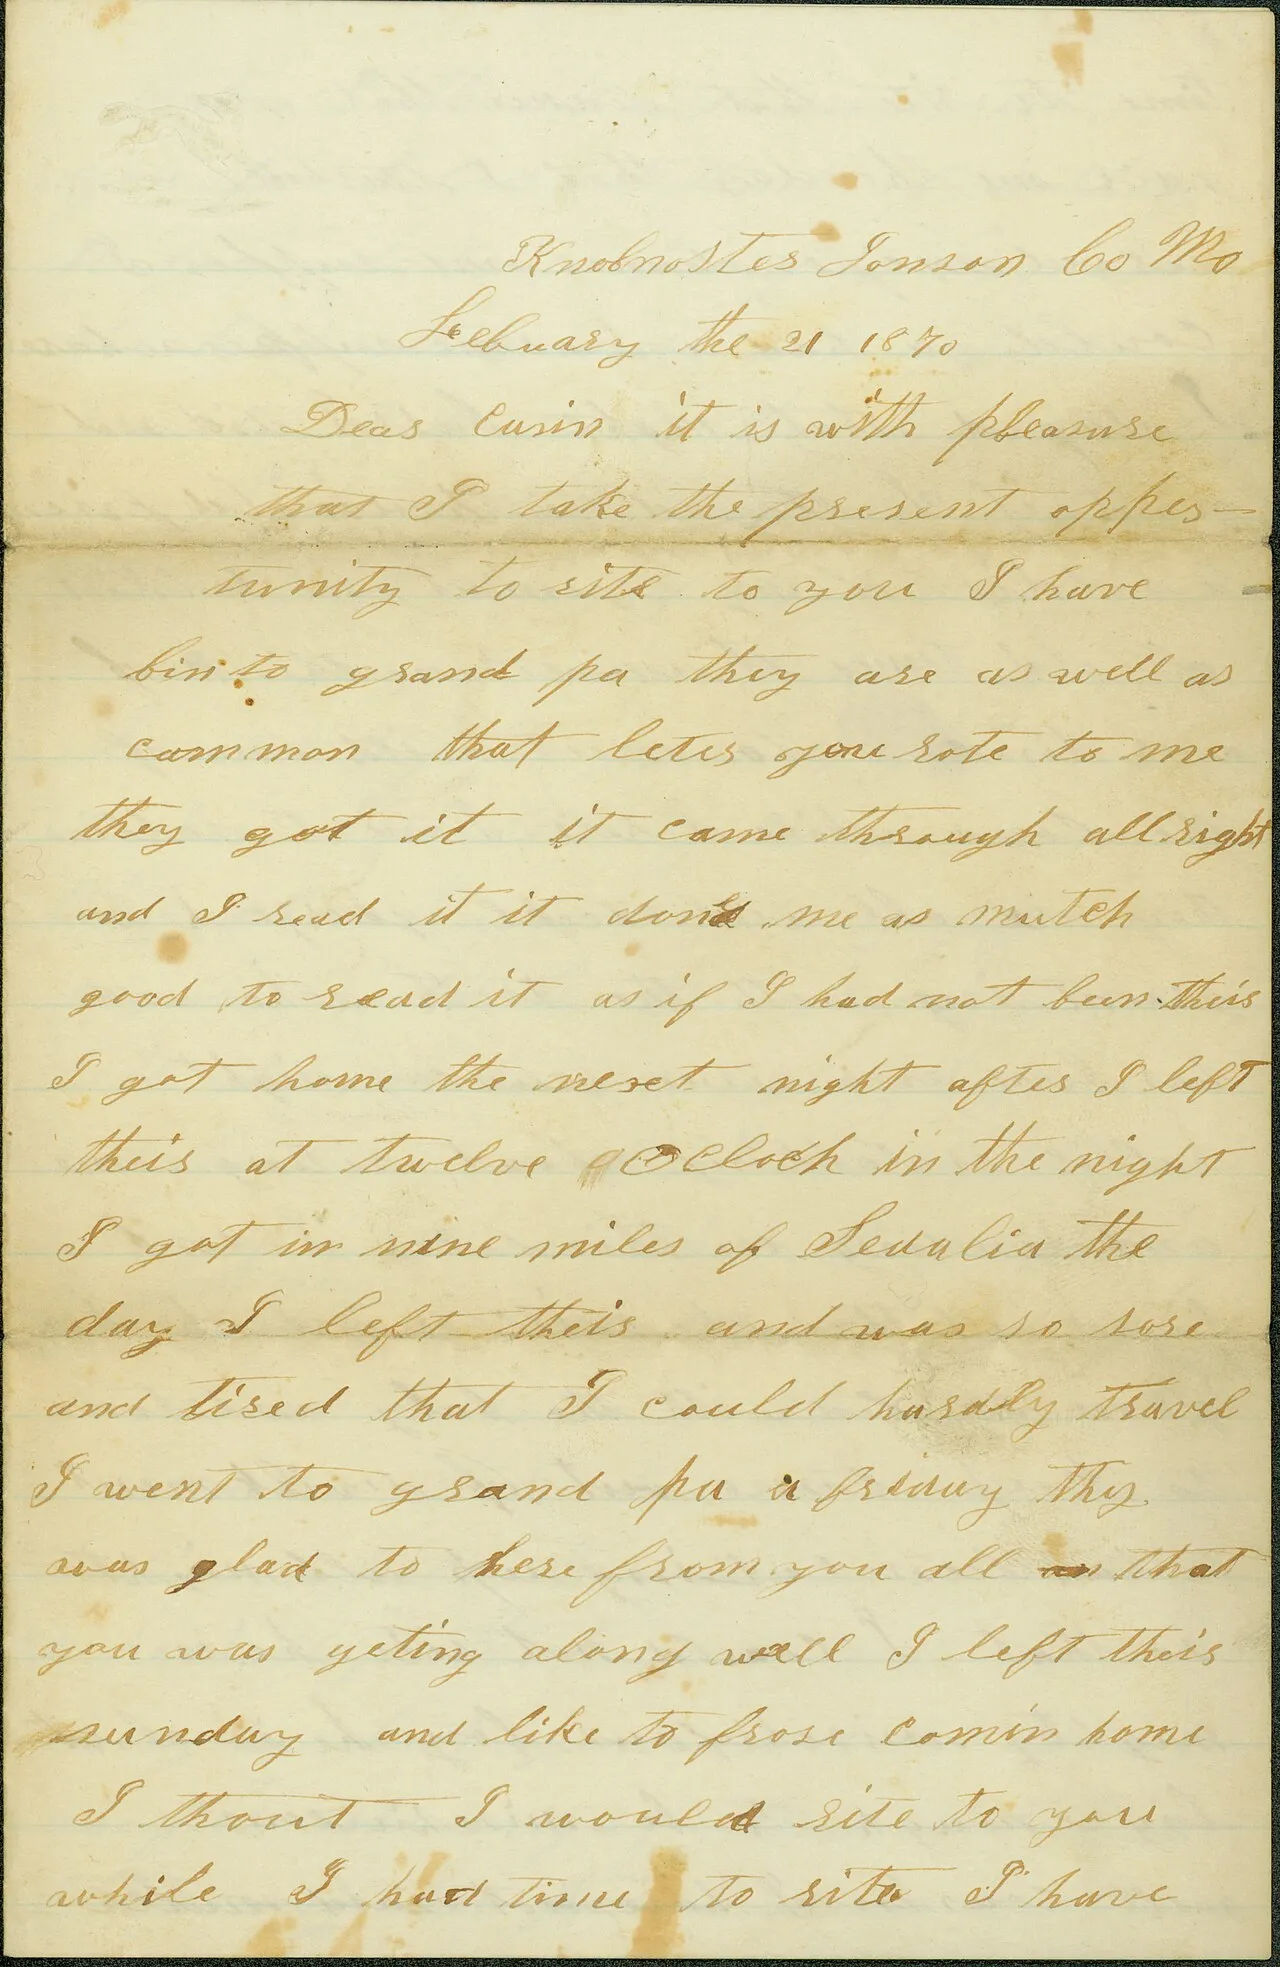 Knobnoster Jonson Co Mo
Febuary the 21 1870
Dear cusin it is with pleasure
that I take the present opper-
tunity to rite to you I have
bin to grand pa they are as well as
common that leter you rote to me
they got it it came through all right
and I read it it done me as mutch
good to read it as if I had not been their
I got home the next night after I left
their at twelve oclock in the night
I got in nine miles of Sedalia the
day I left their and was so sore
and tired that I could hardly travel
I went to grand pa a friday they
was glad to here from you all that
you was geting along well I left their
sunday and like to frose comin home
I thout I would rite to you
while I had time to rite I have